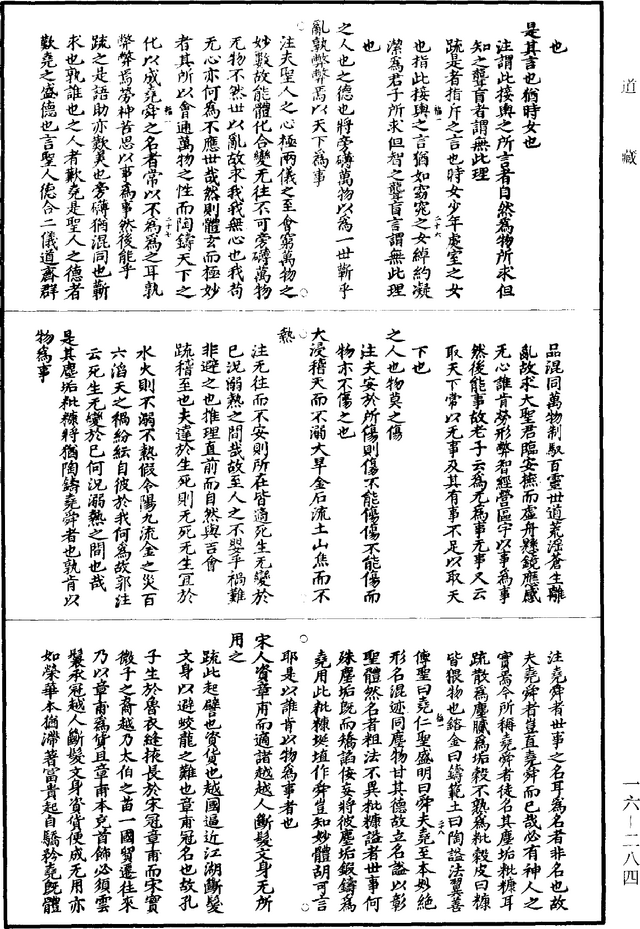 道藏
也
是其言也猶時女也
注謂此接輿之所言者自然為物所求但
知之聾盲者謂無此理
疏是者指斥之言也時女少年處室之女
也指此接輿之言猶如窈窕之女綽約凝
潔為君子所求但智之聾盲言謂無此理
也
之人也之德也將旁礡萬物以為一世蘄乎
亂孰弊弊焉以天下為事
注夫聖人之心極兩儀之至會窮萬物之
妙數故能體化合變无往不可旁礡萬物
无物不然世以亂故求我我無心也我苟
无心亦何為不應世哉然則體玄而極妙
者其所以會通萬物之性而陶鑄天下之
化以成堯舜之名者常以不為為之耳孰
弊弊焉勞神苦思以事為事然後能乎
疏之是語助亦歎美也旁礡猶混同也蘄
求也孰誰也之人者歎堯是聖人之德者
歎堯之盛德也言聖人德合二儀道齊群
品混同萬物制馭百靈世道荒淫蒼生離
亂故求大聖君臨安撫而虛舟懸鏡應感
无心誰肯勞形弊智經營區宇以事為事
然後能事故老子云為无為事无事又云
取天下常以无事及其有事不足以取天
下也
之人也物莫之傷
注夫安於所傷則傷不能傷傷不能傷而
物亦不傷之也
大浸稽天而不溺大旱金石流土山焦而不
熱
注无往而不安則所在皆適死生无變於
已況溺熱之間哉故至人之不嬰乎禍難
非避之也推理直前而自然與吉會
疏稽至也夫達於生死則无死无生宜於
水火則不溺不熱假令陽九流金之災百
六滔天之禍紛紜自彼於我何為故郭注
云死生无變於已何況溺熱之間也哉
是其塵垢粃糠將猶陶鑄堯舜者也孰肯以
物為事
注堯舜者世事之名耳為名者非名也故
夫堯舜者豈直堯舜而已哉必有神人之
實焉今所稱堯舜者徒名其塵垢粃糠耳
疏散為塵膩為垢穀不熟為粃穀皮曰糠
皆猥物也鎔金曰鑄範土曰陶謚法翼善
傳聖曰堯仁聖盛明曰舜夫堯至本妙絕
形名混迹同塵物甘其德故立名謚以彰
聖體然名者粗法不異粃糠謚者世事何
殊塵垢既而矯諂佞妄將彼塵垢鍛鑄為
堯用此粃糠埏埴作舜豈知妙體胡可言
耶是以誰肯以物為事者也
宋人資章甫而適諸越越人斷髮文身无所
用之
疏此起譬也資貨也越國逼近江湖斷髮
文身以避蛟龍之難也章甫冠名也故孔
子生於魯衣縫掖長於宋冠章甫而宋實
微子之裔越乃太伯之苗二國貿遷往來
乃以章甫為貨且章甫本充首飾必須雲
鬟承冠越人斷髮文身資貨便成无用亦
如榮華本猶滯著富貴起自驕矜堯既體
一六-二八四